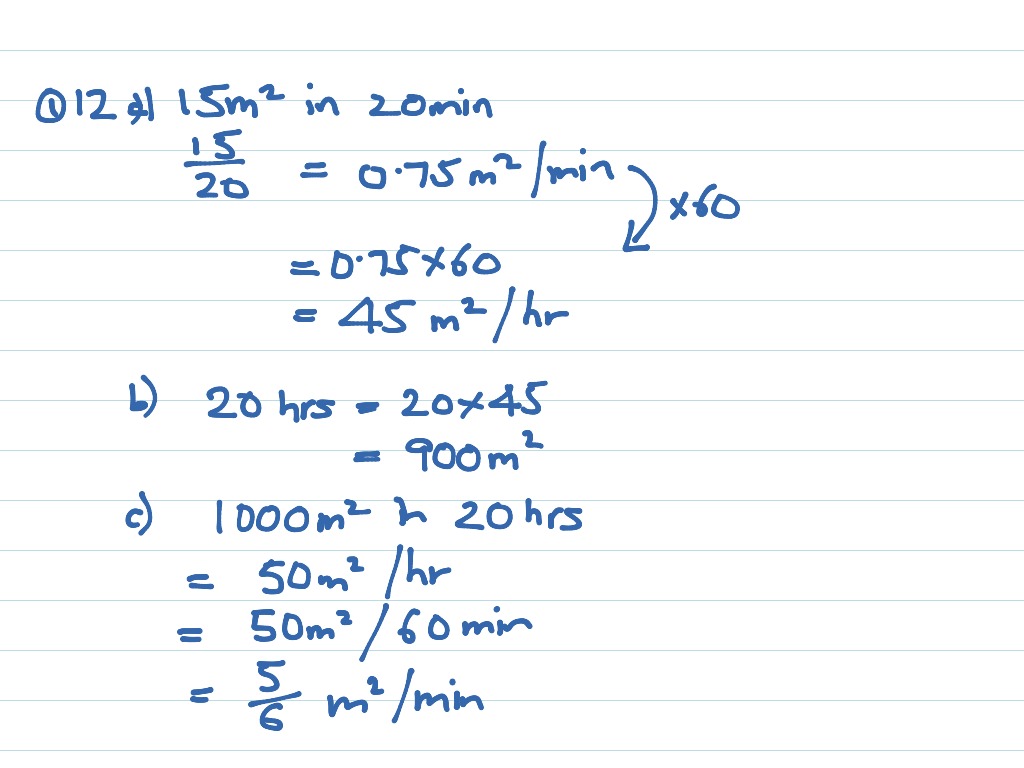 Q12 a) 15m² in 20min
15/20 = 0.75 m²/min
×60
= 0.75×60
= 45 m²/hr
b) 20 hrs = 20×45
= 900m²
c) 1000m² in 20hrs
= 50m²/hr
= 50m²/60 min
= 5/6 m²/min